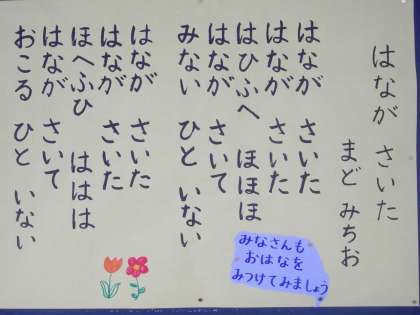 はなが さいた
まど みちお
はなが さいた
はなが さいた
はひふへ ほほほ
はなが さいて
みない ひと いない
はなが さいた
はなが さいた
ほへふひ ははは
はなが さいて
おこる ひと いない
みなさんも
おはなを
みつけてみましょう